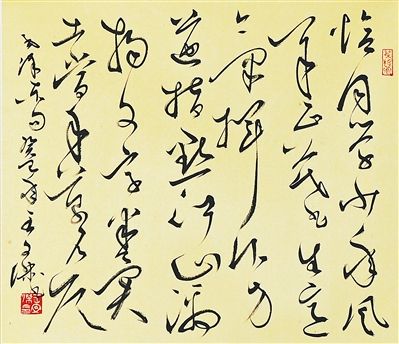 恰同学少年风
华正茂书生意
气挥斥方
遒指点江山激
扬文字粪
土当年万户侯
毛泽东句癸巳年王文